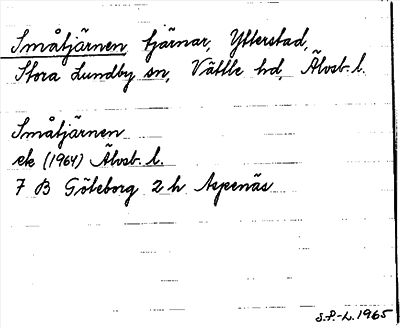 Småtjärnen, tjärnar, Ytterstad,
Stora Lundby sn, Vättle hd, Älvsb. l.
Småtjärnen
ek (1964) Älvsb. l.
7 B Göteborg 2 h Aspenäs
S.P.-L. 1965